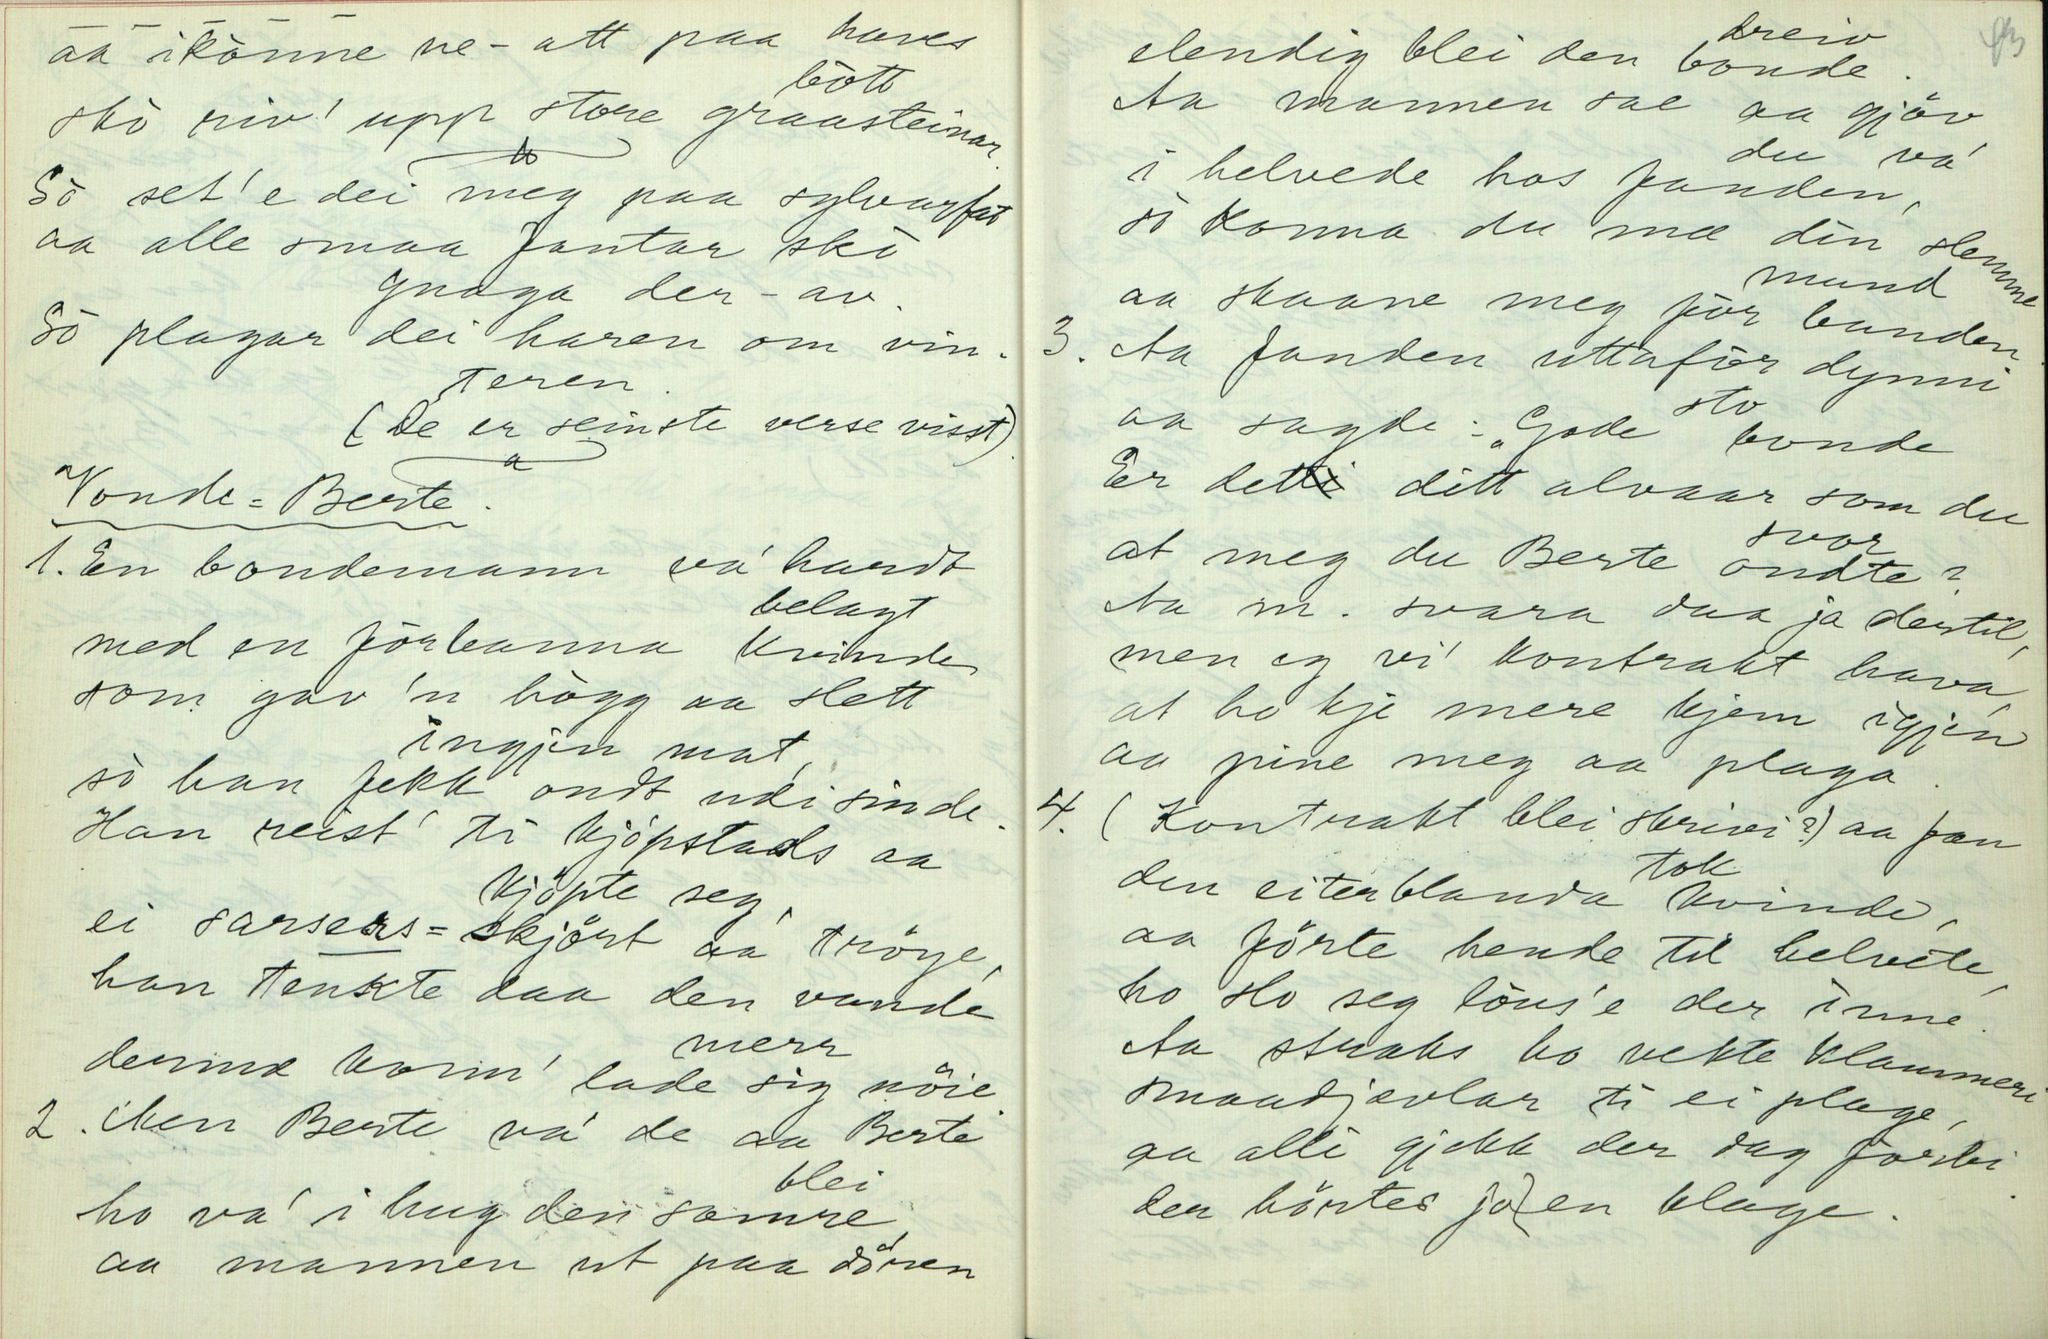 åå ikönne ne - att paa haves
bött
skö riv' upp store graasteinar.
Sö set'e dei meg paa sylvarfat
aa alle smaa Fantar skö
gnaga der-av.
Sö plagar dei haren om vin-
teren.
(De er seinste verse visst).
Vonde=Berte.
1. En bondemann va' hardt
belagt
med en forbanna kvinde
som gav 'n högg aa slett
ingjen mat,
sö han fekk ondt udi sinde.
Han reist' ti kjöpstads aa
kjöpte seg,
ei sarsers=skjört aa tröye,
han tenkte daa den vonde
merr
derme konn' lade sig nöie
2. Men Berte va' de aa Berte
blei
ho va' i hug den somre,
aa mannen ut paa dören
93
dreiv
elendig blei den bonde.
Aa mannen sae aa gjöv
du va'
i helvede hos Fanden,
sö konna du mæ din slemme
mund
aa skaane meg för banden.
3. Aa Fanden uttaför dynni
sto
aa sagde: "Gode bonde
Er det ditt alvaar som du
svor
at meg du Berte ondte?
Aa m. svara daa ja dertil,
men eg vi' kontrakt hava,
at ho kje mere kjem igjen
aa pine meg aa plaga.
4. (Kontrakt blei skrivi?) aa fan
tok
den eiterblanda kvinde,
aa förte hende til helvete,
ho slo seg löus'e der inne.
Aa straks ho vekte klammeri
smaadjevlar ti ei plage,
aa alli gjekk der dag forbi
der hörtes jo en klage.